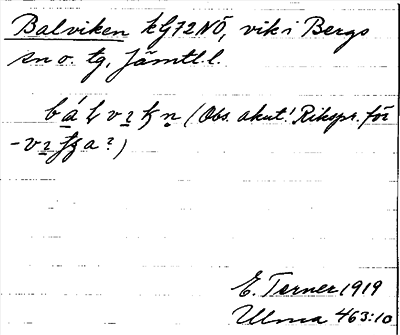 Balviken kG72NÖ, vik i Bergs
sn o. tg, Jämtl.l.
(Obs. akut! Rikspr. för
a?)
E. Torner 1919
Ulma 463:10